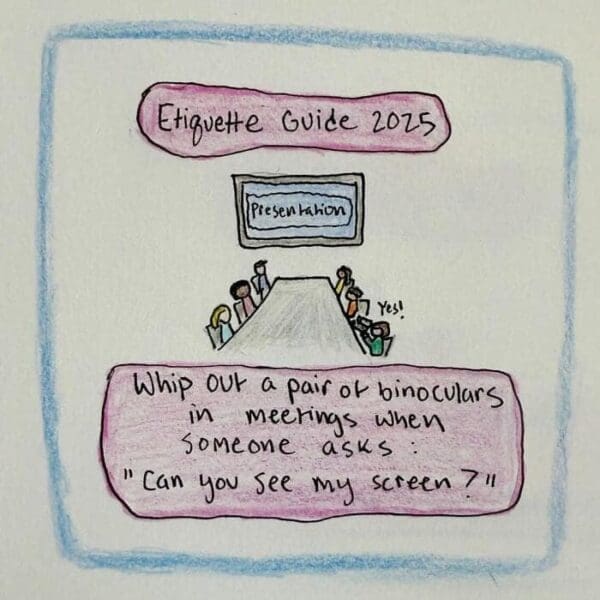 Etiquette Guide 2025
Presentation
Yes!
Whip out a pair of binoculars
in meetings when
someone asks :
"Can you see my screen?"